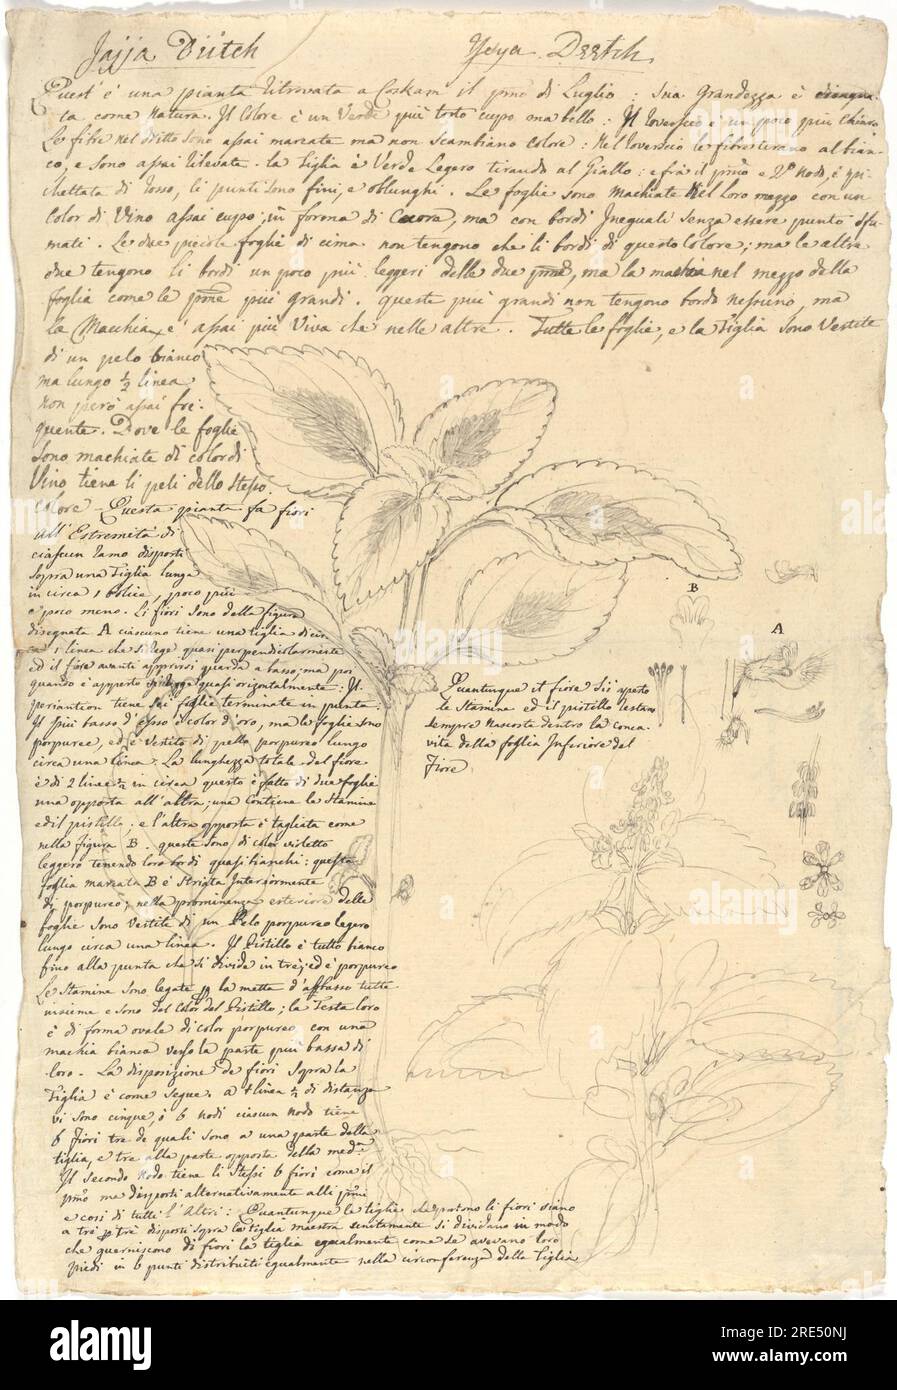 Jajja Diitch
Yeya Deetch
Quest' è una pianta ritrovata a Coskam il pmo di Luglio : Sua Grandezza è
ta come Natura. Il Colore è un Verde più tosto cupo ma bello : Il roverscio è un poco più chiaro
Le fibre nel dritto sono assai marcate ma non scambiano Colore : Nel roverscio le fibre tirano al bian-
co, e sono assai rilevate. la Tiglia è Verde Legero tirando al Giallo : e frà il pmo e 2do Nodo, è
chettata di rosso, li punti sono fini, e oblunghi. Le foglie sono machiate Nel Loro mezzo con un
Color di Vino assai cupo, in forma di Cuore, ma con bordi Ineguali senza essere punto sfu-
mati. Le due piccole foglie di cima non tengono che li bordi di questo Colore; ma le altre
due tengono li bordi un poco più leggeri delle due pme, ma la machia nel mezzo della
foglia come le pme più grandi. queste più grandi non tengono bordo nessuno, ma
la Macchia, e' assai più Viva che nelle altre. Tutte le foglie, e la Tiglia sono Vestite
di un pelo bianco
ma lungo ½ linea
non però assai fre-
quente. Dove le foglie
sono machiate di color di
Vino tiene li peli dello stesso
colore - Questa pianta fa fiori
all' Estremità di
ciascun ramo disposti
sopra una Tiglia lunga
in circa 1 police, poco più
o poco meno. Li fiori sono della figura
disegnata A ciascuno tiene una tiglia di circa
1 linea che si lege quasi perpendicolarmente
ed il fiore avanti aprirsi guarda a basso, ma poi
quando è apperto si legge quasi orizontalmente : Il
periantion tiene sei foglie terminate in punta
Il più basso d'esso è color d'oro, ma le foglie sono
porpuree, ed è Vestito di pello porpureo lungo
circa una linea. La lunghezza totale del fiore
è di 2 linee ½ in circa questo è fatto di due foglie
una opposta all'altra; una Contiene le Stamine
ed il pistillo, e l'altra opposta è tagliata come
nella figura B. queste sono di color violetto
leggero tenendo loro bordi quasi bianchi : questa
foglia marcata B è Striata Interiormente
di porpureo; nella prominenza esteriore delle
foglie sono Vestite di un Pelo porpureo legero
lungo circa una linea. Il Pistillo è tutto bianco
fino alla punta che si divide in tre, ed è porpureo
Le Stamine sono legate per la mettà d'abbasso tutte
insieme e sono del Color del Pistillo; la Testa loro
è di forma ovale di color porpureo con una
machia bianca verso la parte più bassa di
loro. La disposizione de fiori sopra la
Tiglia è come segue. a 1 linea ½ di distanza
vi sono cinque, ò 6 nodi ciascun nodo tiene
6 fiori tre de quali sono a una parte della
tiglia, e tre alla parte opposta della medma
Il secondo nodo tiene li stessi 6 fiori come il
pmo ma disposti alternativamente alli pmi
e cosi di tutti l'Altri : Quantunque le tiglie che portono li fiori siano
a tre per tre disposti sopra la tiglia maestra si dividano in modo
che guerniscono di fiori la tiglia egualmente come se avevano loro
piedi in 6 punti distribuiti egualmente nella circonferenza della Tiglia
B
A
Quantunque il fiore sii aperto
le Stamine ed il pistillo restano
sempre nascoste dentro la conca-
vità della foglia Inferiore del
Fiore
alamy
Image ID: 2RE50NJ
www.alamy.com